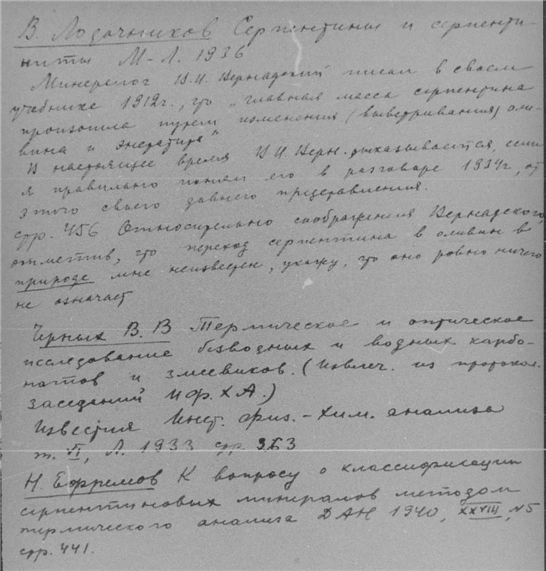 В. Лодочников Серпентины и серпенти-
ниты М-Л. 1936
Минералог В.И. Вернадский писал в своем
учебнике 1912г., что „главная масса серпентина
произошла путем изменения (выветривания) оли-
вина и энстатита"
В настоящее время В.И. Верн. отказывается, если
я правильно понял его в разговоре 1934г, от
этого своего давнего представления.
стр. 456 Относительно соображения Вернадского,
отметив, что переход серпентина в оливин в
природе мне неизвестен, укажу, что оно ровно ничего
не означает
Черных В. В Термическое и оптическое
исследование безводных и водных карбо-
натов и змеевиков. (Извлеч. из протокол.
заседаний И.Ф.Х.А.)
Известия Инст. физ.-хим. анализа
т. VI, Л. 1933 стр. 363
Н. Ефремов К вопросу о классификации
серпентиновых минералов методом
термического анализа ДАН 1940, XXVIII, №5
стр. 441.